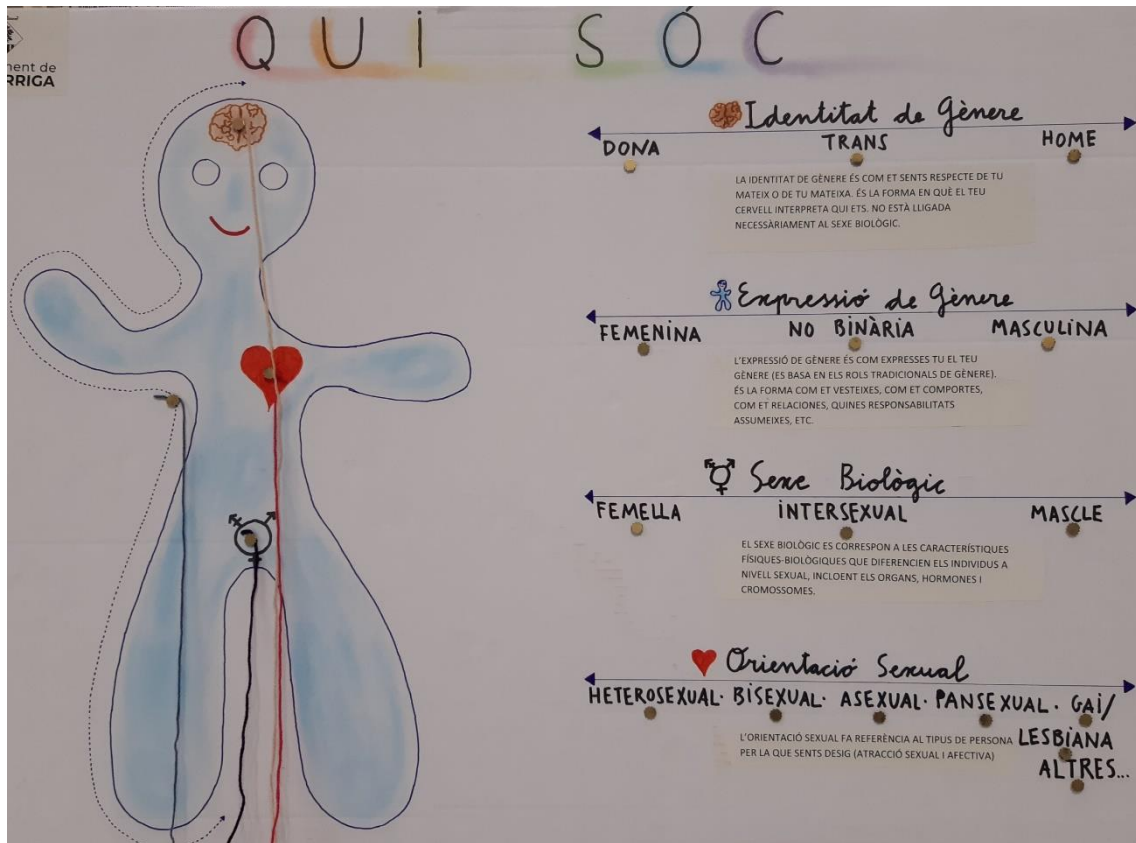 QUI SÓC
ment de
RRIGA
Identitat de Gènere
DONA TRANS HOME
LA IDENTITAT DE GÈNERE ÉS COM ET SENTS RESPECTE DE TU
MATEIX O DE TU MATEIXA. ÉS LA FORMA EN QUÈ EL TEU
CERVELL INTERPRETA QUI ETS. NO ESTÀ LLIGADA
NECESSÀRIAMENT AL SEXE BIOLÒGIC.
Expressió de Gènere
FEMENINA NO BINÀRIA MASCULINA
L'EXPRESSIÓ DE GÈNERE ÉS COM EXPRESSES TU EL TEU
GÈNERE (ES BASA EN ELS ROLS TRADICIONALS DE GÈNERE).
ÉS LA FORMA COM ET VESTEIXES, COM ET COMPORTES,
COM ET RELACIONES, QUINES RESPONSABILITATS
ASSUMEIXES, ETC.
Sexe Biològic
FEMELLA INTERSEXUAL MASCLE
EL SEXE BIOLÒGIC ES CORRESPON A LES CARACTERÍSTIQUES
FÍSIQUES-BIOLÒGIQUES QUE DIFERENCIEN ELS INDIVIDUS A
NIVELL SEXUAL, INCLOENT ELS ORGANS, HORMONES I
CROMOSSOMES.
Orientació Sexual
HETEROSEXUAL· BISEXUAL· ASEXUAL· PANSEXUAL· GAI/
LESBIANA
ALTRES...
L'ORIENTACIÓ SEXUAL FA REFERÈNCIA AL TIPUS DE PERSONA
PER LA QUE SENTS DESIG (ATRACCIÓ SEXUAL I AFECTIVA)